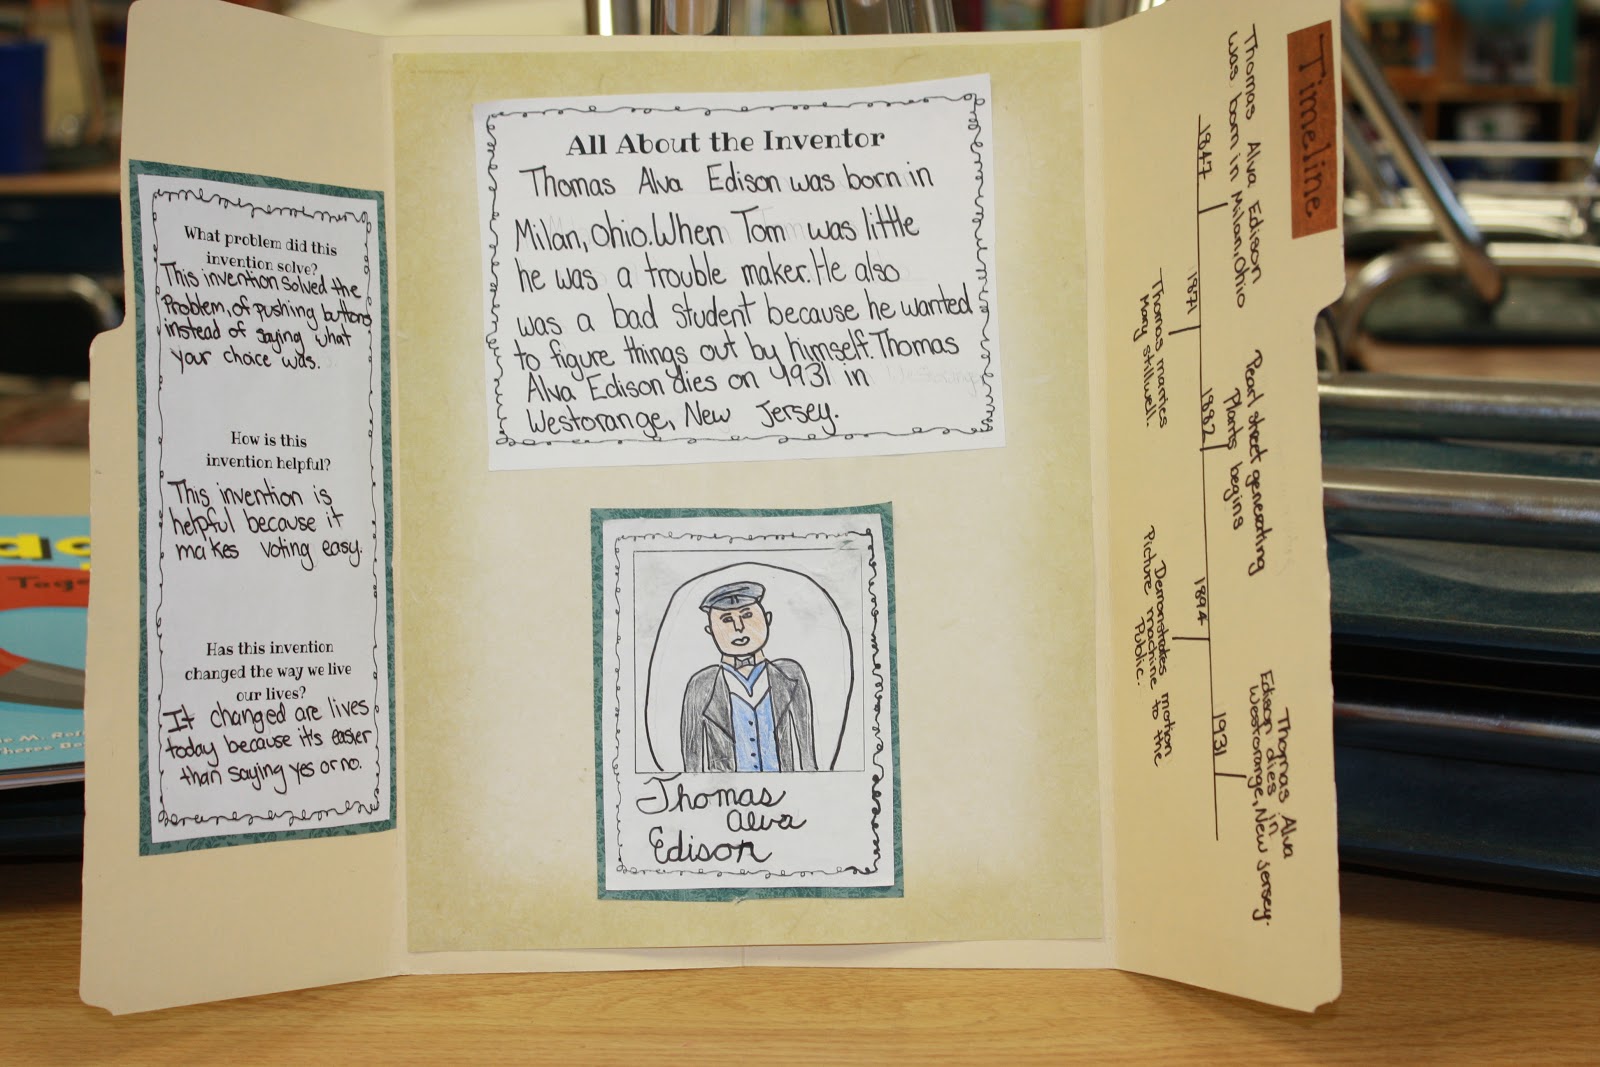 What problem did this
invention solve?
This invention solved the
Problem, of pushing buttons
instead of saying what
your choice was.
How is this
invention helpful?
This invention is
helpful because it
makes voting easy.
Has this invention
changed the way we live
our lives?
It changed are lives
today because it's easier
than saying yes or no.
All About the Inventor
Thomas Alva Edison was born in
Milan, Ohio. When Tom was little
he was a trouble maker. He also
was a bad student because he wanted
to figure things out by himself. Thomas
Alva Edison dies on 1931 in
Westorange, New Jersey.
Thomas
Alva
Edison
Timeline
Thomas Alva Edison
was born in Milan, Ohio
1847
1871
Thomas marries
Mary stillwell.
Pearl street generating
Plants begins
1882
1894
Demonstrates motion
Picture machine to the
Public.
Thomas Alva
Edison dies in
Westorange, New Jersey.
1931